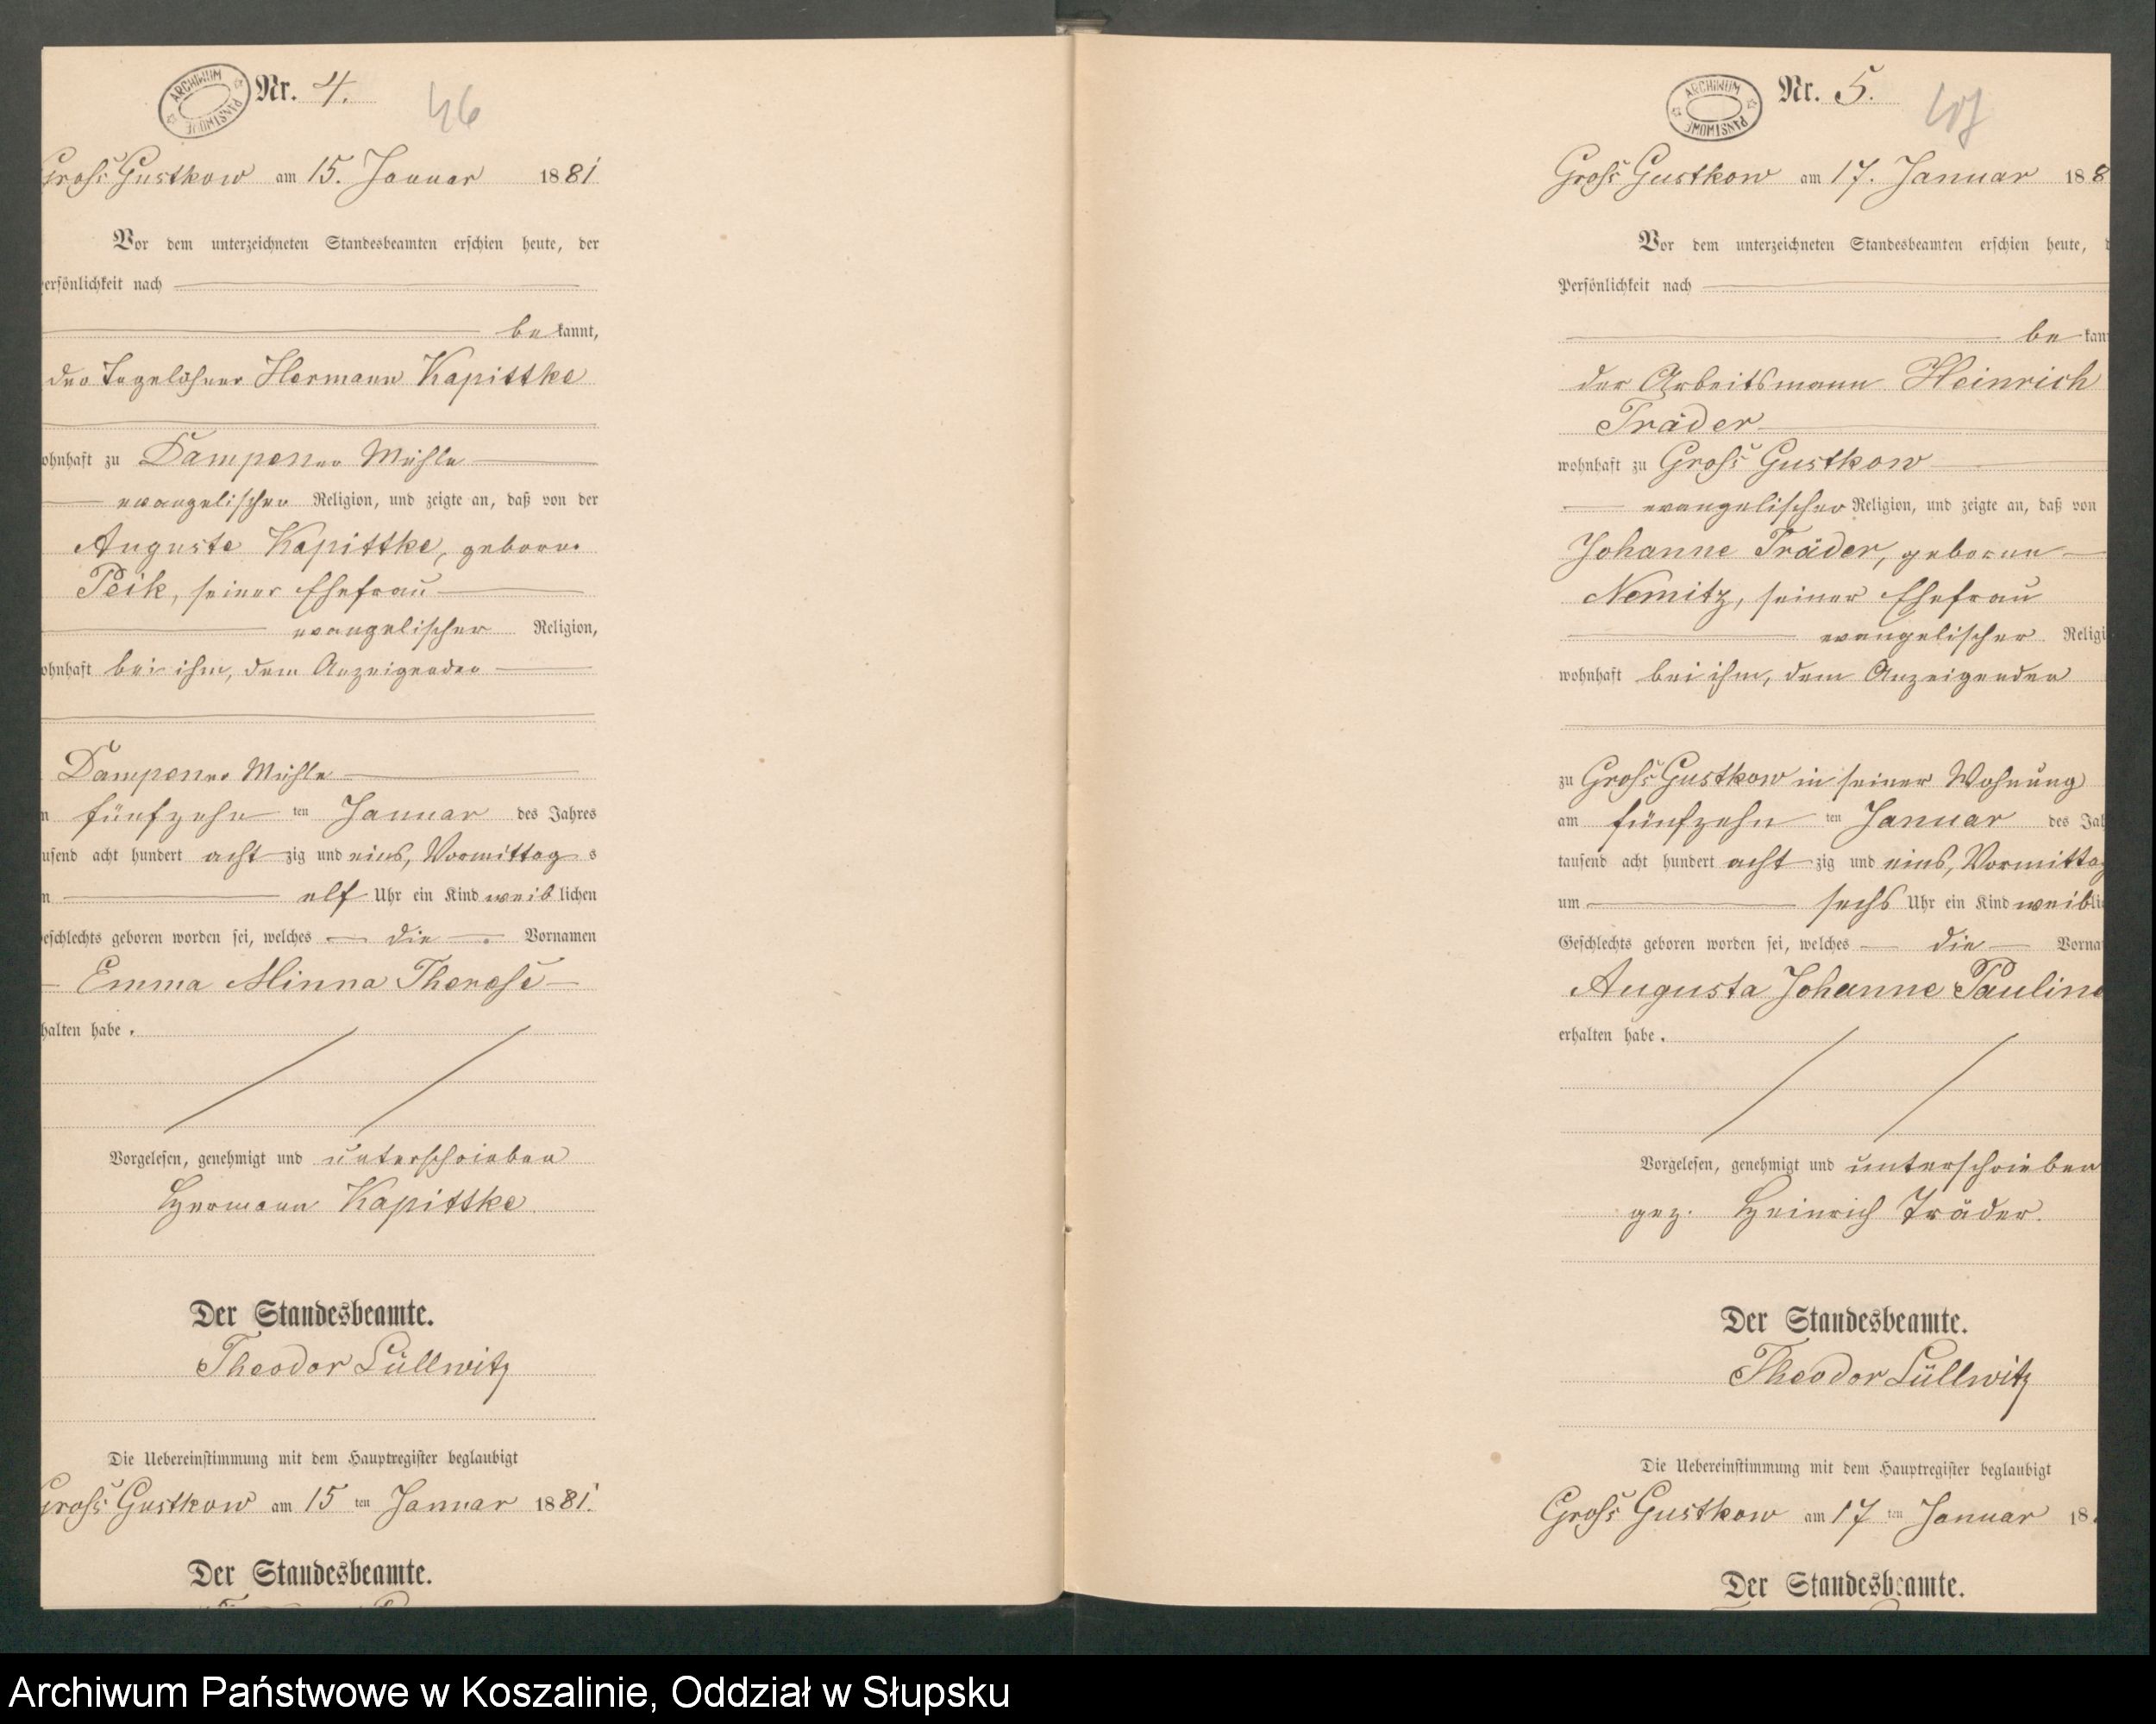 ARCHIWUM PAŃSTWOWE
Nr. 4.
46
Groß Gustkow am 15. Januar 1881
Vor dem unterzeichneten Standesbeamten erschien heute, der
ersönlichkeit nach
be kannt,
der Tagelöhner Hermann Kapittke
ohnhaft zu Dampener Mühle
evangelischer Religion, und zeigte an, daß von der
Auguste Kapittke, geborne
Peik, seiner Ehefrau
evangelischer Religion,
ohnhaft bei ihm, dem Anzeigenden
Dampener Mühle
fünfzehn ten Januar des Jahres
usend acht hundert acht zig und eins, Vormittag s
elf Uhr ein Kind weib lichen
eschlechts geboren worden sei, welches die Vornamen
Emma Minna Therese
halten habe.
Vorgelesen, genehmigt und unterschrieben
Hermann Kapittke
Der Standesbeamte.
Theodor Lüllwitz
Die Uebereinstimmung mit dem Hauptregister beglaubigt
Groß Gustkow am 15 ten Januar 1881.
Der Standesbeamte.
ARCHIWUM PAŃSTWOWE
Nr. 5.
Groß Gustkow am 17. Januar 188
Vor dem unterzeichneten Standesbeamten erschien heute, d
Persönlichkeit nach
be kan
der Arbeitsmann Heinrich
Träder
wohnhaft zu Groß Gustkow
evangelischer Religion, und zeigte an, daß von
Johanne Träder, geborne
Nemitz, seiner Ehefrau
evangelischer Religi
wohnhaft bei ihm, dem Anzeigenden
zu Groß Gustkow in seiner Wohnung
am fünfzehn ten Januar des Jah
tausend acht hundert acht zig und eins, Vormittag
um sechs Uhr ein Kind weibli
Geschlechts geboren worden sei, welches die Vorna
Augusta Johanne Pauline
erhalten habe.
Vorgelesen, genehmigt und unterschrieben
gez. Heinrich Träder.
Der Standesbeamte.
Theodor Lüllwitz
Die Uebereinstimmung mit dem Hauptregister beglaubigt
Groß Gustkow am 17 ten Januar 18
Der Standesbeamte.
Archiwum Państwowe w Koszalinie, Oddział w Słupsku